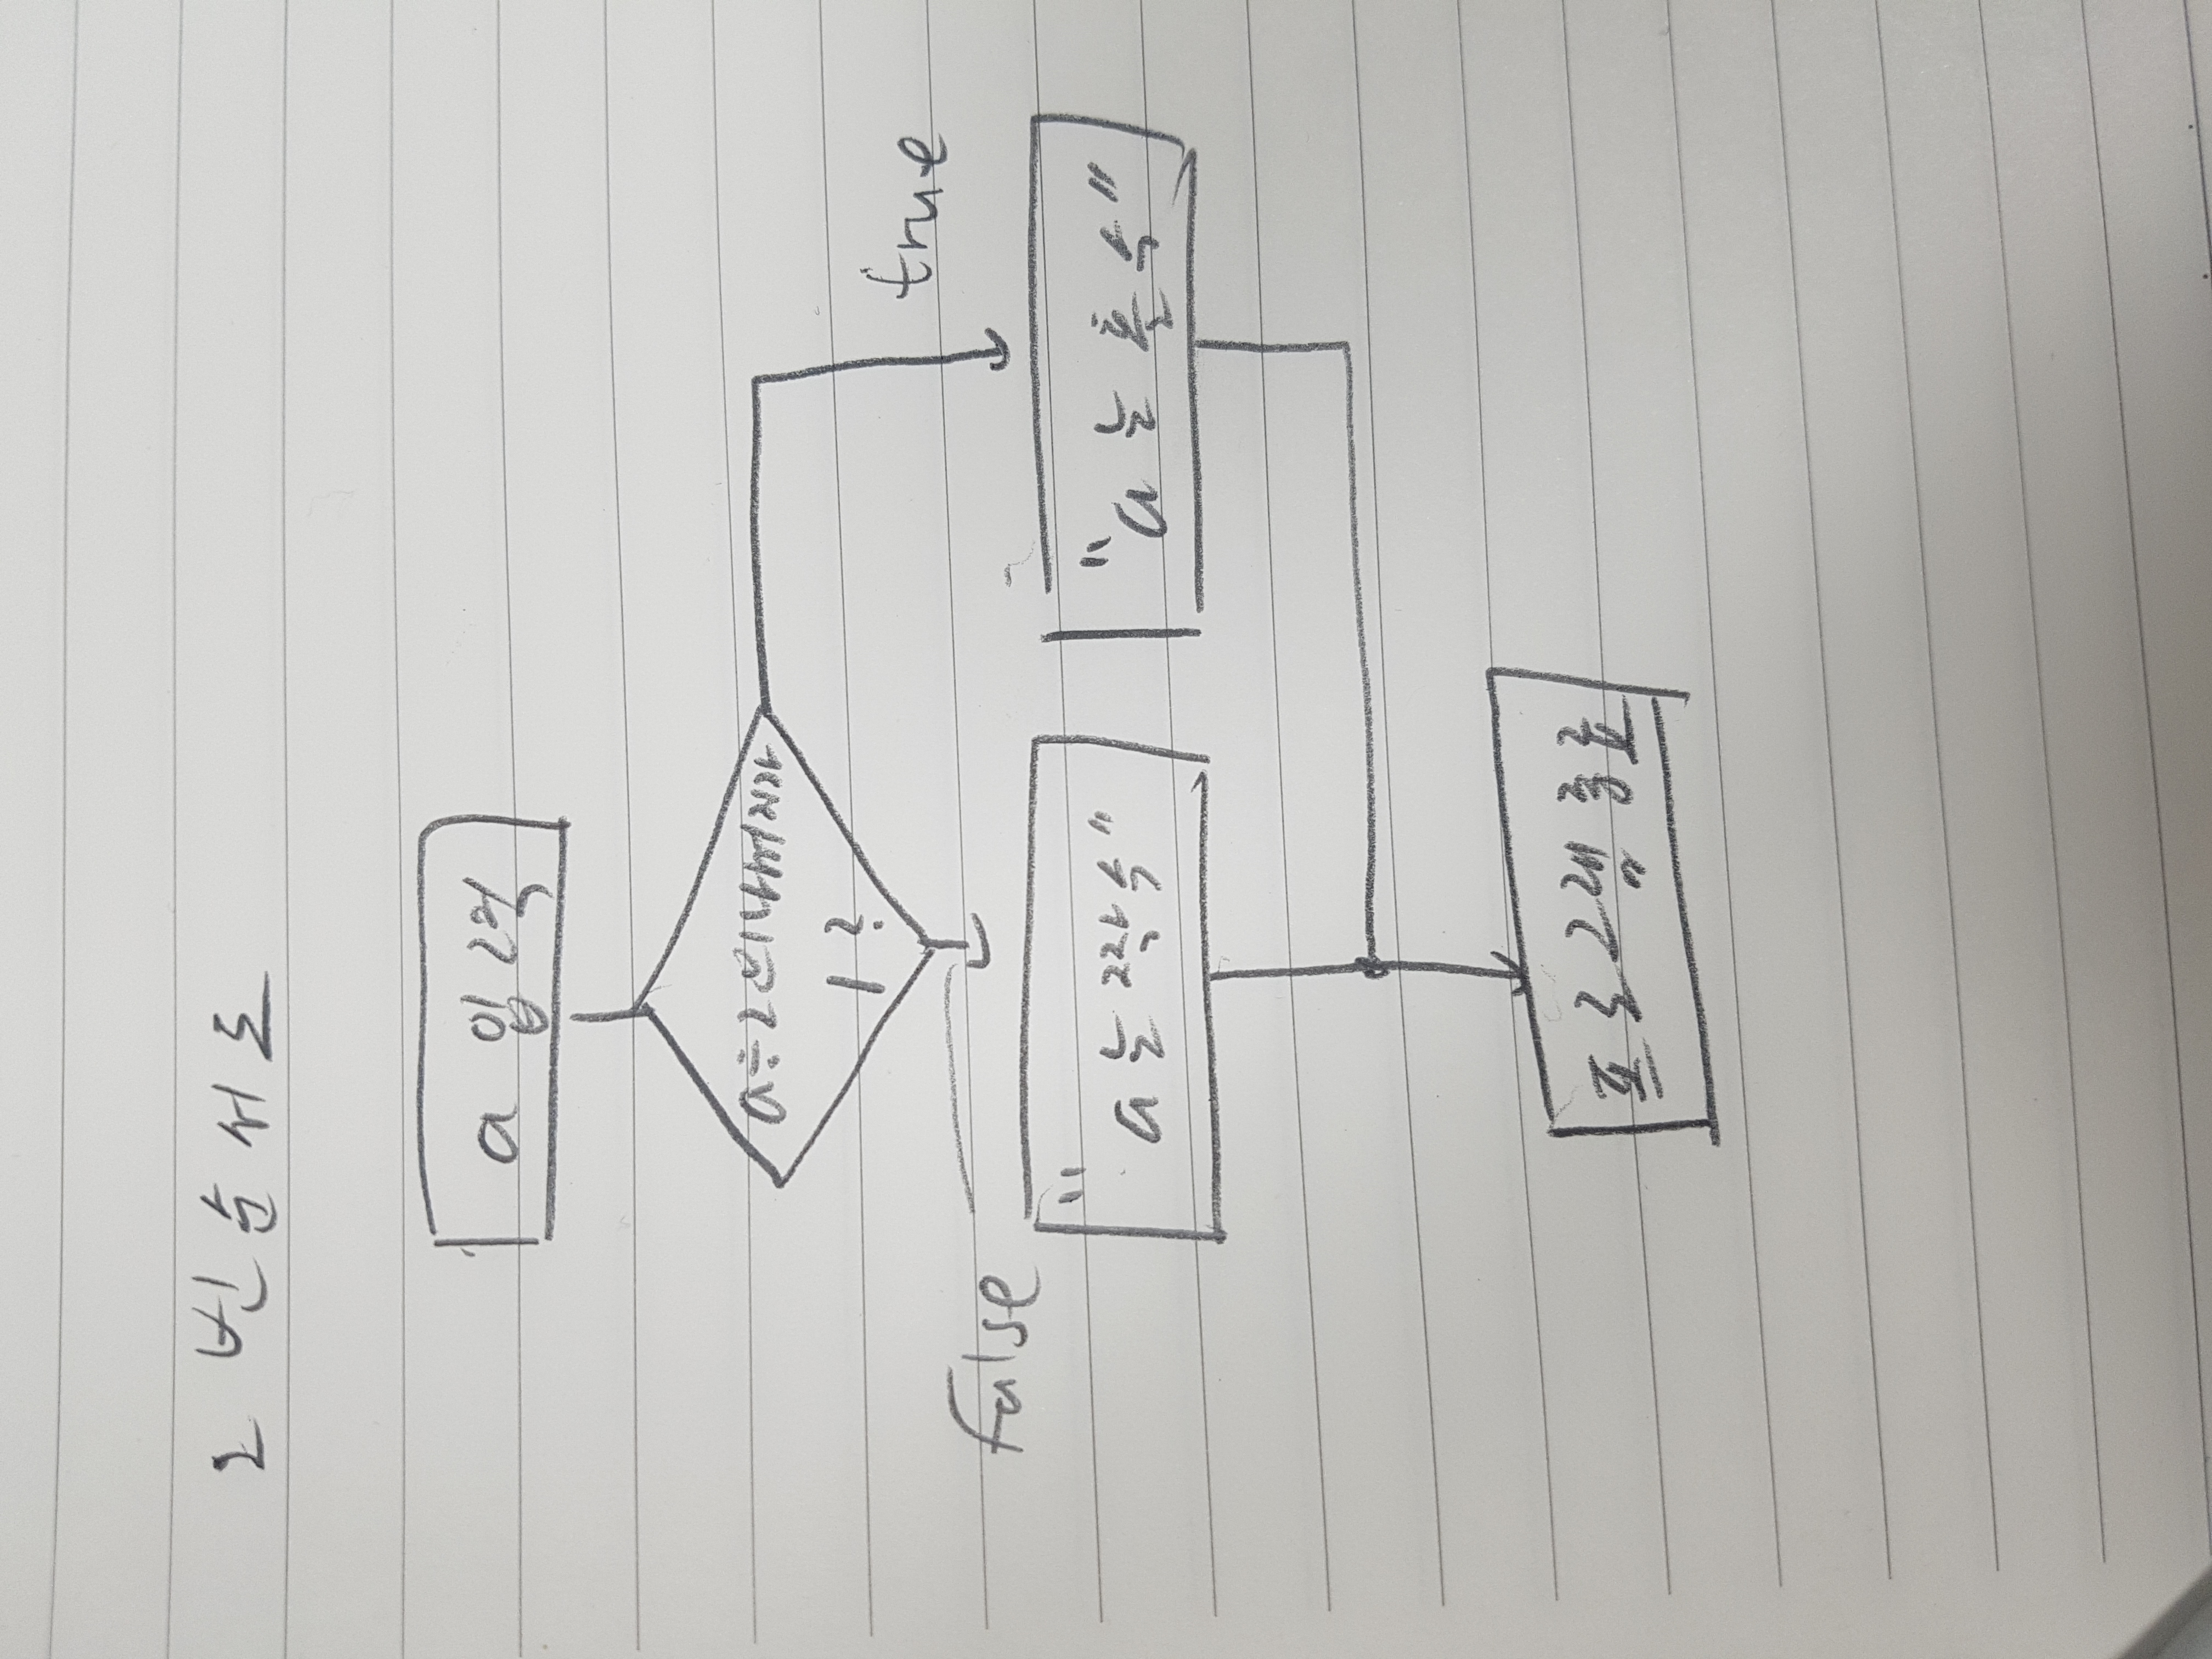 2번 순서도
a 입력
a÷2의 나머지가
1?
true
false
"a는 짝수"
"a는 홀수"
프로그램 종료